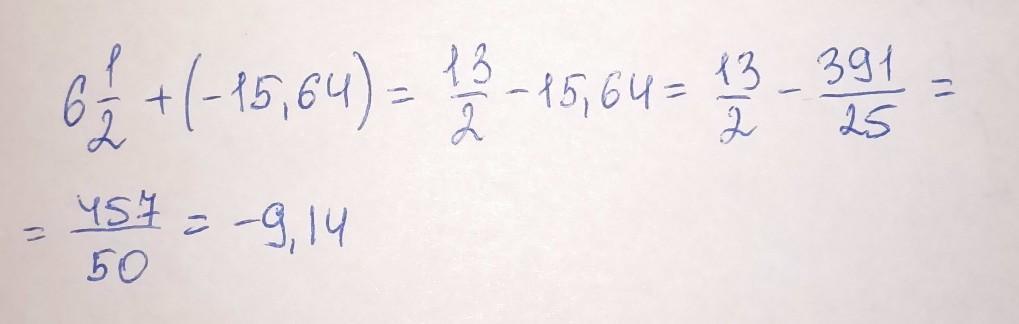 6 1/2 + (-15,64) = 13/2 - 15,64 = 13/2 - 391/25 =
= 457/50 = -9,14